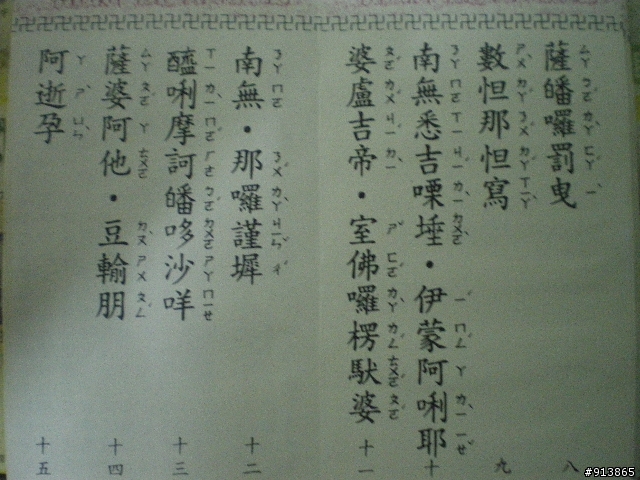 薩皤囉罰曳 八
數怛那怛寫 九
南無悉吉㗚埵・伊蒙阿唎耶 十
婆盧吉帝・室佛囉楞馱婆 十一
南無・那囉謹墀 十二
醯唎摩訶皤哆沙咩 十三
薩婆阿他・豆輸朋 十四
阿逝孕 十五
#913865